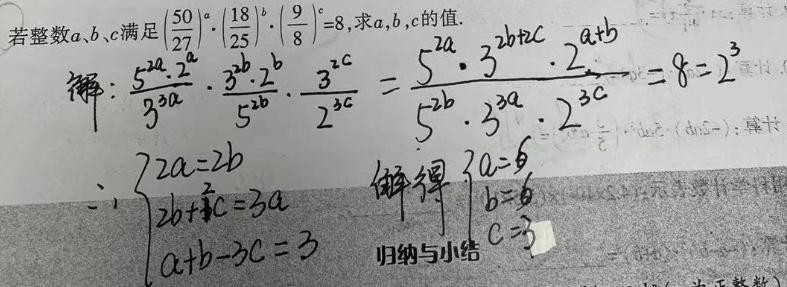 若整数a、b、c满足(50/27)^a·(18/25)^b·(9/8)^c=8,求a,b,c的值.
解: (5^{2a}·2^a)/3^{3a} · (3^{2b}·2^b)/5^{2b} · 3^{2c}/2^{3c} = (5^{2a}·3^{2b+2c}·2^{a+b})/(5^{2b}·3^{3a}·2^{3c}) = 8 = 2^3
∴ { 2a=2b 解得 { a=6
2b+2c=3a b=6
a+b-3c=3 c=3
归纳与小结